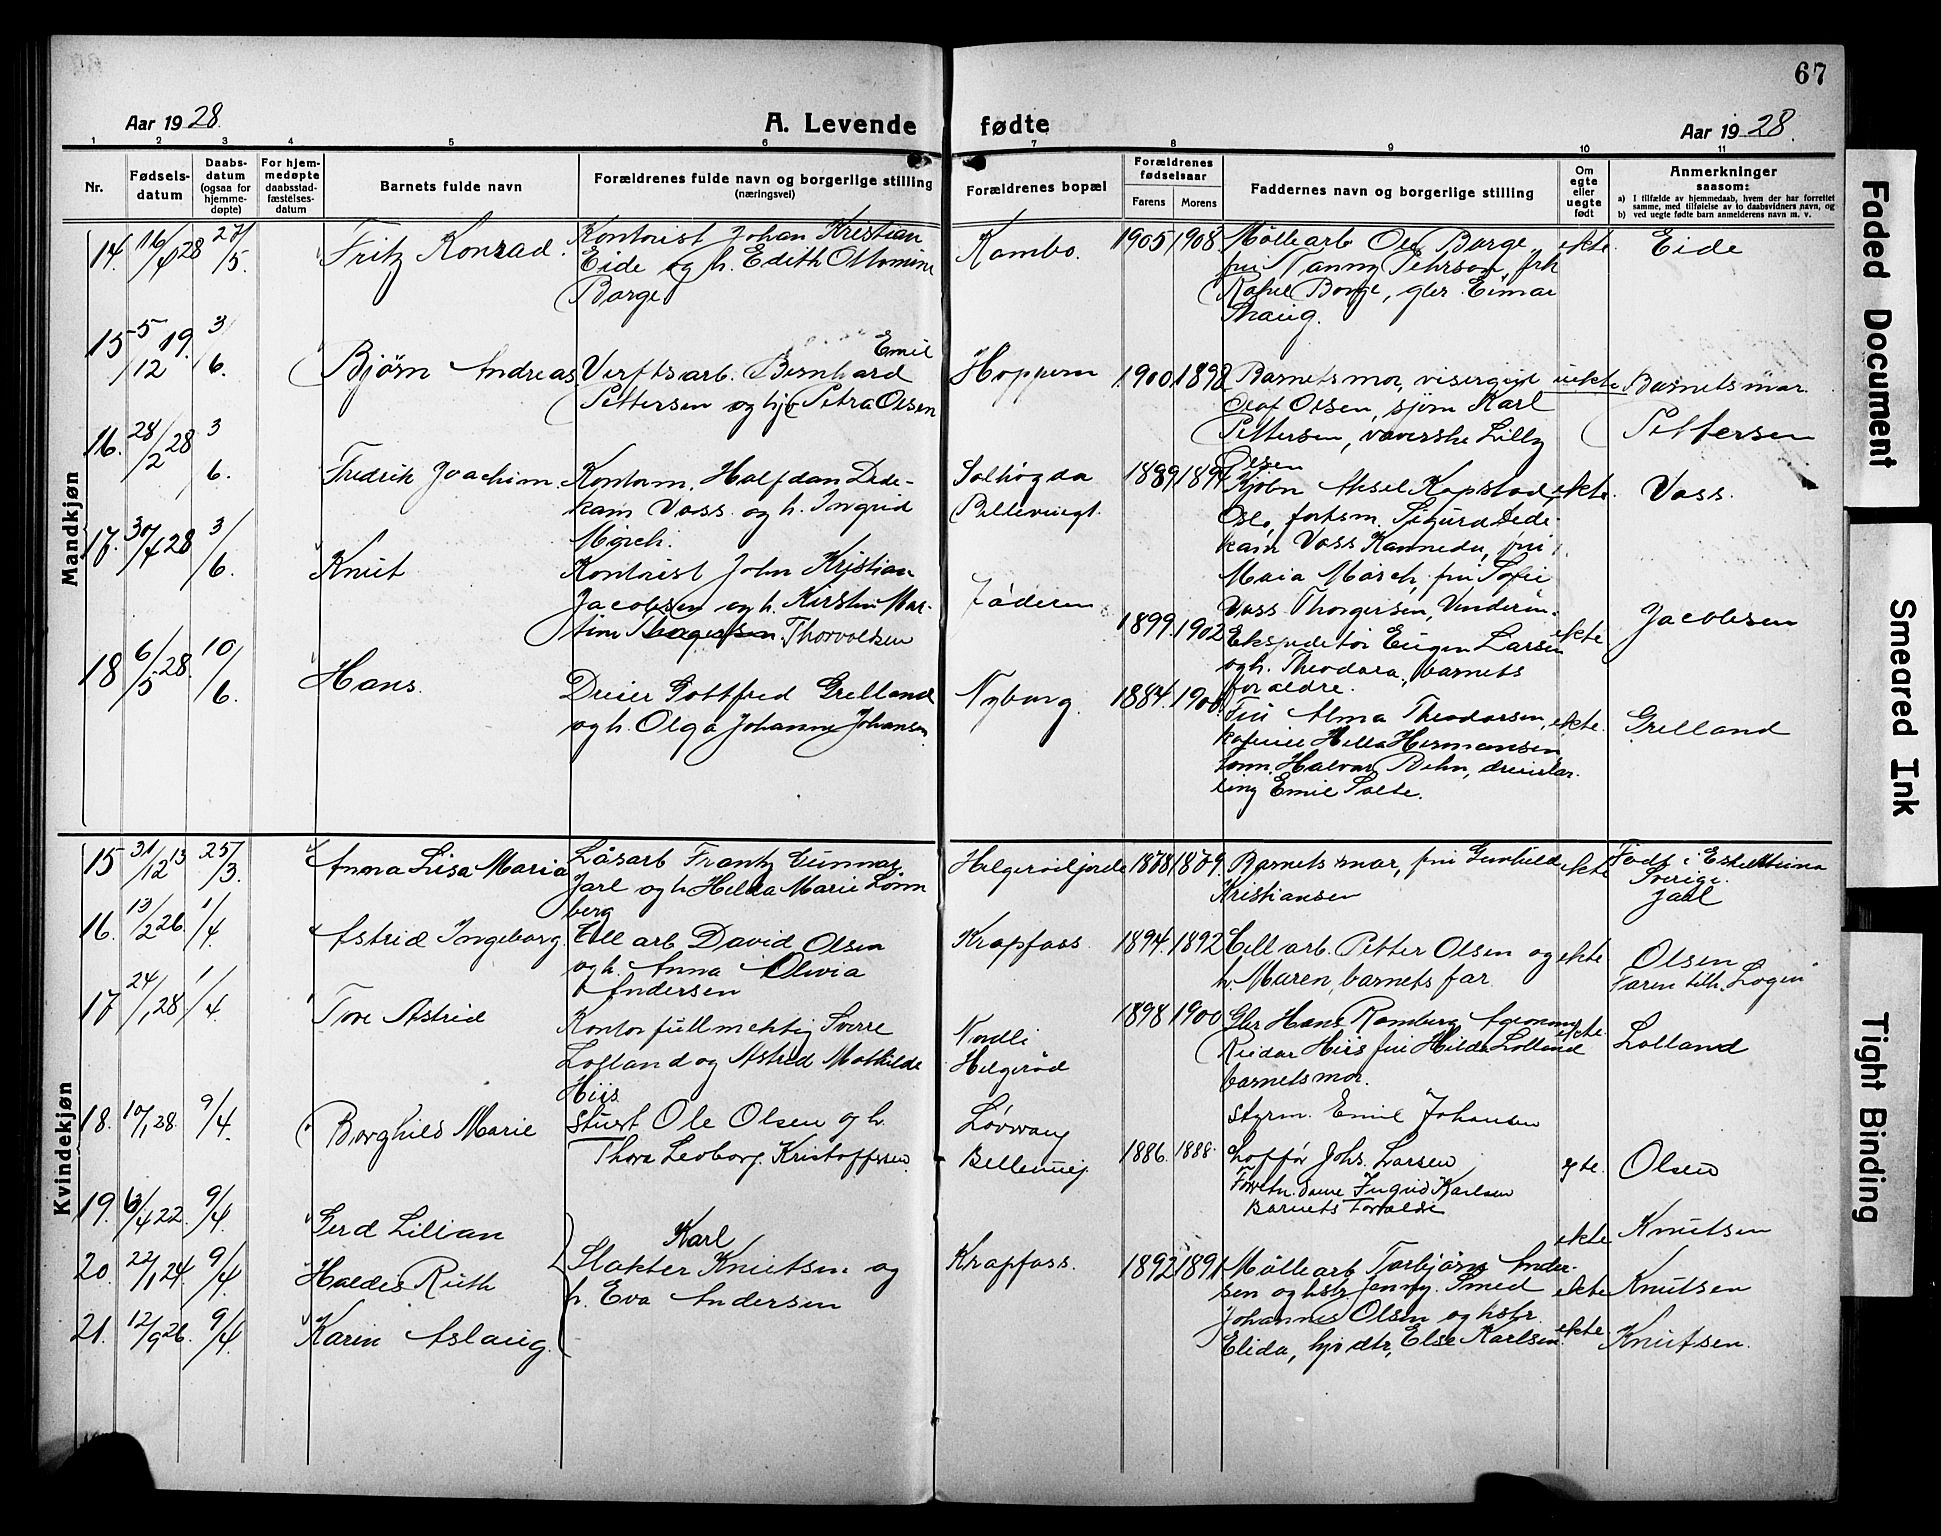 67
Aar 1928.
A. Levende fødte
Aar 1928.
1 2 3 4 5 6 7 8 9 10 11
Nr.
Fødsels-
datum
Daabs-
datum
(ogsaa for
hjemme-
døpte)
For hjem-
medøpte
daabsstad-
fæstelses-
datum
Barnets fulde navn
Forældrenes fulde navn og borgerlige stilling
(næringsvei)
Forældrenes bopæl
Forældrenes
fødselsaar
Farens
Morens
Faddernes navn og borgerlige stilling
Om
egte
eller
uegte
født
Anmerkninger
saasom:
a) I tilfælde av hjemmedaab, hvem der har forrettet
samme, med tilføielse av to daabsvidners navn, og
b) ved uegte fødte barn anmelderens navn m. v.
Mandkjøn
14. 16/4 28 27/5. Fritz Konrad.
Kontorist Johan Kristian
Eide og h. Edith Ottomine
Borge
Kambo. 1905 1908.
Møllearb Ole Borge,
fru Nanny Pehrson, frk
Borge, gbr. Einar
Skaug.
ekte. Eide
15 5/12 19. 3/6. Bjørn Andreas
Emil
Verftsarb. Bernhard
Pettersen og hj. Petra Olsen
Hoppern 1900 1898
Barnets mor, visergut
Olaf Olsen, sjøm Karl
Pettersen, væverske Lilly
Olsen
uekte Barnets mor.
Pettersen
16. 28/2 28 3/6. Fredrik Joachim.
Kontorm. Halfdan Dede-
kam Voss og h. Ingrid
Mørch.
Solhøgda
Bellevuegt.
1889 1891
Kjøbm Aksel Kopstad
Oslo, forfsm. Sigurd Dede-
kam Voss Kanneda, fru
Maia Mørch, fru Sofie
Voss Thorgersen, Vinderen.
ekte. Voss.
17. 30/4 28 3/6. Knut
Kontorist John Kristian
Jacobsen og h. Kirsten Mar-
tine Thorvaldsen
Jøderen 1899. 1902
Ekspeditør Eugen Larsen
og h. Theodora, barnets
foraeldre.
ekte Jacobsen
18 6/5 28. 10/6. Hans.
Dreier Gottfred Grelland
og h. Olga Johanne Johansen
Nyborg. 1884. 1900.
Fru Alma Theodorsen,
Hella Hermansen
Halvar Behn, dreierlær-
ling Emil Salte.
ekte. Grelland
Kvindekjøn
15 31/12 13 25/3. Anna Lisa Maria
Låsarb Frantz Gunnar
Jarl og h Hilda Marie Lönn
berg
Helgerøifjorde 1878 1879.
Barnets mor, fru Gunhild
Kristiansen
ekte Født i Eskilstuna
Sverige.
Jarl
16. 13/2 26. 1/4. Astrid Ingeborg.
Cell arb David Olsen
og h. Anna Olivia
Andersen
Krapfoss. 1894. 1892
Cell arb. Petter Olsen og
h. Maren, barnets far.
ekte Olsen
Faren tilh. Logen
17 24/1 28 1/4. Tove Astrid
Kontorfullmektig Sverre
Lolland og Astrid Mathilde
Hiis
Nordli
Helgerød
1898 1900
Gbr Hans Ramberg Agronom
Reidar Hiis fru Hilda Lolland
barnets mor.
ekte. Lolland
18. 10/1 28. 9/4. Borghild Marie
Stuert Ole Olsen og h.
Thora Leoborg. Kristoffersen.
Løvvang
Bellevuej.
1886. 1888.
Styrm. Emil Johansen
Loffør Johs. Larsen
Forretn. dame Ingrid Karlsen
Barnets Forældre
egte. Olsen
19. 6/4 22. 9/4. Gerd Lillian
ekte Knutsen
20. 22/1 24. 9/4. Haldis Ruth
Karl
Slakter Knutsen og
h. Eva Andersen
Krapfoss. 1892 1891
Møllearb Torbjørn Ander-
sen og hstr Jenny. Smed
Johannes Olsen og hstr.
Elida, hjv dtr, Else Karlsen.
ekte Knutsen
21. 12/9 26. 9/4. Karin Aslaug.
ekte. Knutsen.
Faded Document
Smeared Ink
Tight Binding